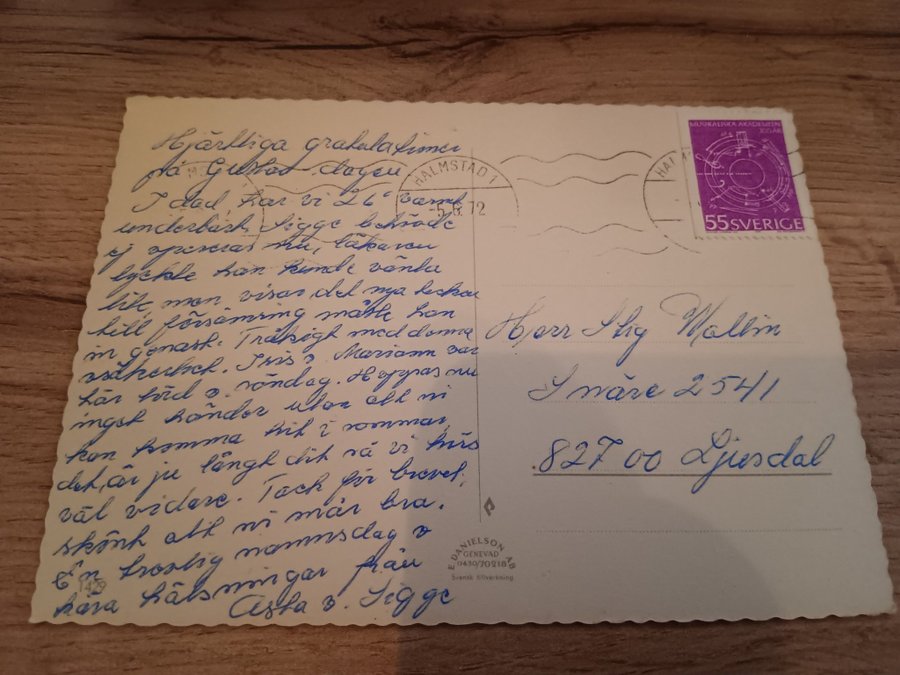 Hjärtliga gratulationer
på Gustav dagen
I dad har vi 26° varmt
underbart, Sigge behövde
ej opereras nu, läkaren
tyckte han kunde vänta
lite, men visar det nya tecken
till försämring måste han
in genast. Tråkigt med denna
osäkerhet. Iris o. Mariann var
här förd o. söndag. Hoppas nu
inget händer utan att ni
kan komma hit i sommar
det är ju långt dit så vi hörs
väl vidare. Tack för brevet,
skönt att ni mår bra.
En trevlig namnsdag o
kära hälsningar från
Asta o. Sigge
1429
HALMSTAD 1
-5.6.72
HALM
MUSIKALISKA AKADEMIEN
200 ÅR
55 SVERIGE
Herr Stig Wallin
Snäre 2541
827 00 Ljusdal
E. DANIELSON AB
GENEVAD
0430/70218
Svensk tillverkning